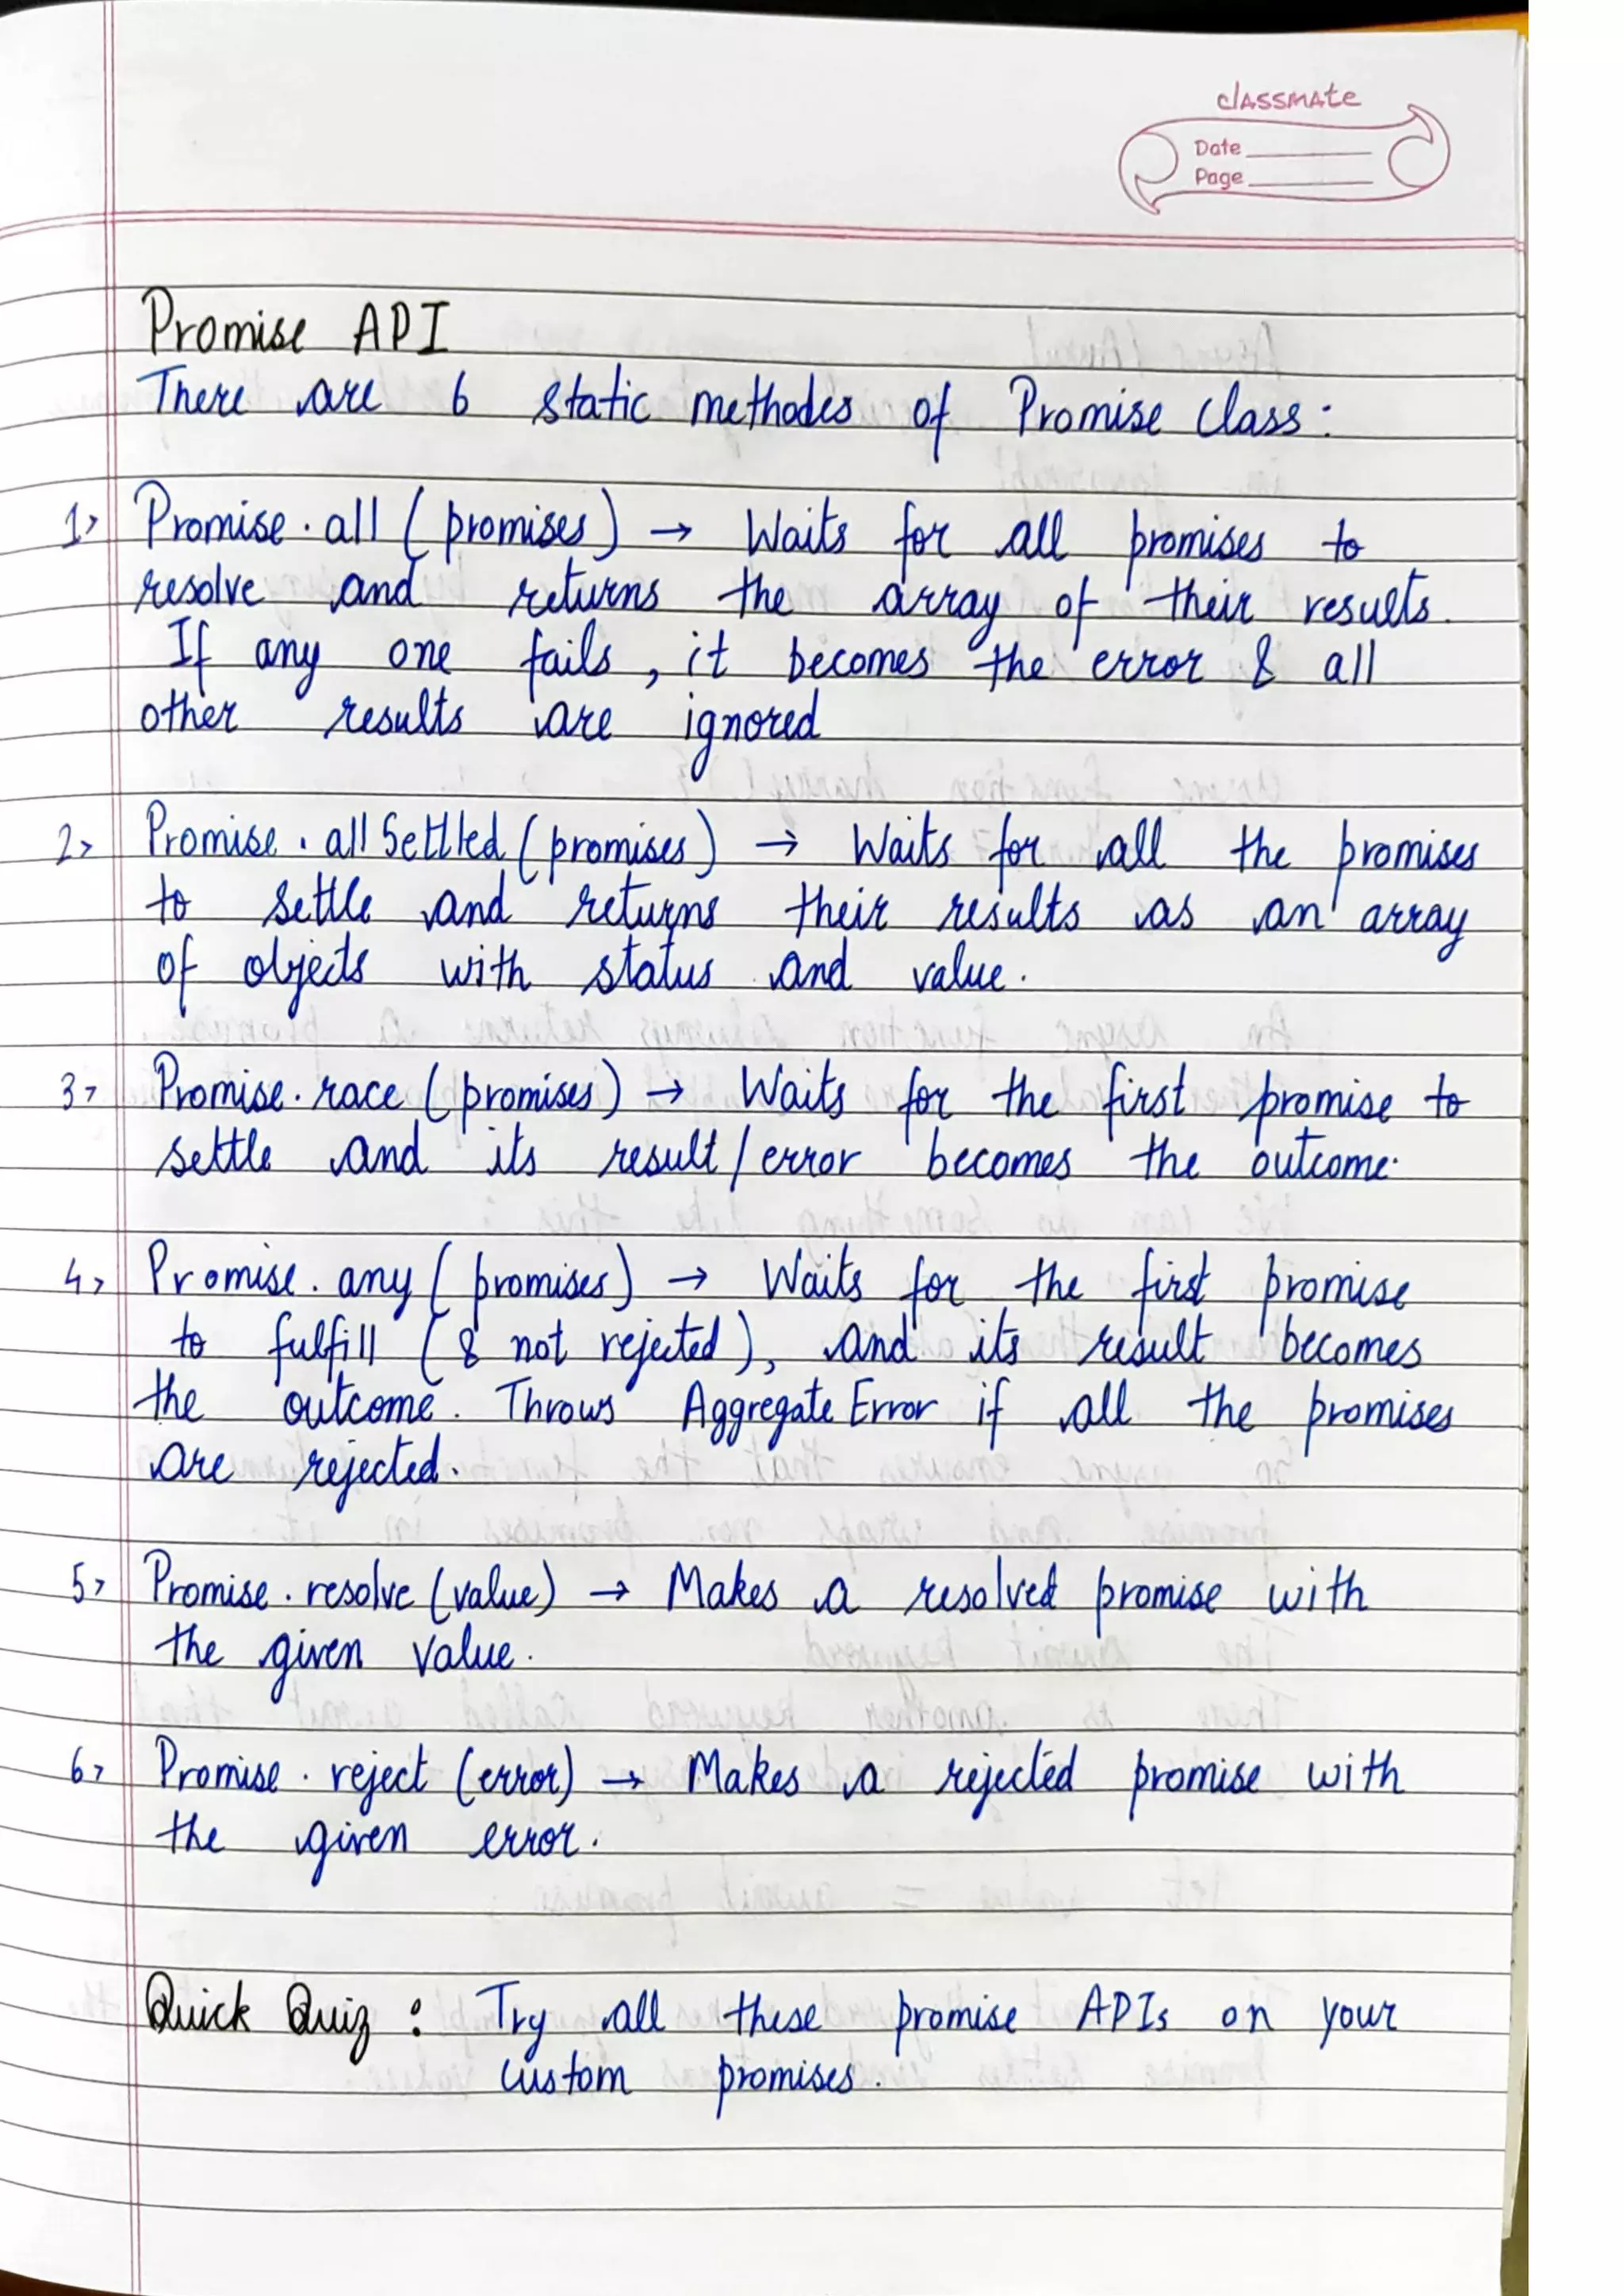 classmate
Date
Page
Promise API
There are 6 static methodes of Promise class :
1> Promise . all ( promises ) → Waits for all promises to
resolve and returns the array of their results.
If any one fails , it becomes the error & all
other results are ignored
2> Promise . allSettled ( promises ) → Waits for all the promises
to settle and returns their results as an array
of objects with status and value .
3> Promise . race ( promises ) → Waits for the first promise to
settle and its result / error becomes the outcome .
4> Promise . any ( promises ) → Waits for the first promise
to fulfill ( & not rejected ) , and its result becomes
the outcome . Throws Aggregate Error if all the promises
are rejected .
5> Promise . resolve ( value ) → Makes a resolved promise with
the given value .
6> Promise . reject ( error ) → Makes a rejected promise with
the given error .
Quick Quiz : Try all these promise APIs on your
custom promises .